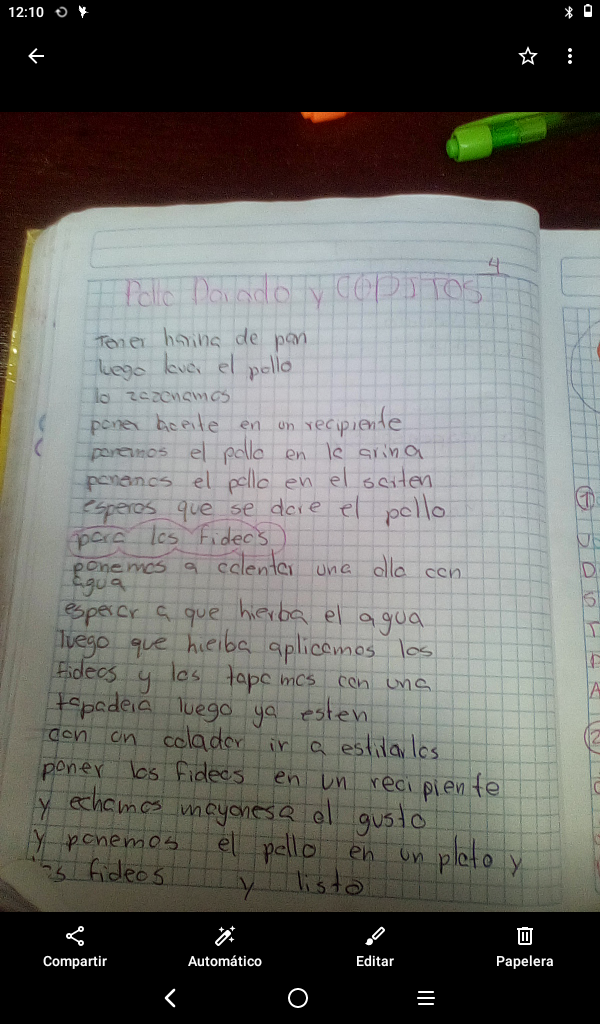 12:10
4
Pollo Dorado y CODITOS
Tener harina de pan
luego lavar el pollo
lo zazonamos
poner aceite en un recipiente
ponemos el pollo en la arina
ponemos el pollo en el saiten
esperos que se dore el pollo
para los fideos
ponemos a calentar una olla con
agua
esperar a que hierba el agua
luego que hierba aplicamos los
fideos y los tapamos con una
tapadera luego ya esten
con un colador ir a estilarlos
poner los fideos en un recipiente
y echamos mayonesa al gusto
y ponemos el pollo en un plato y
fideos y listo
Compartir
Automático
Editar
Papelera